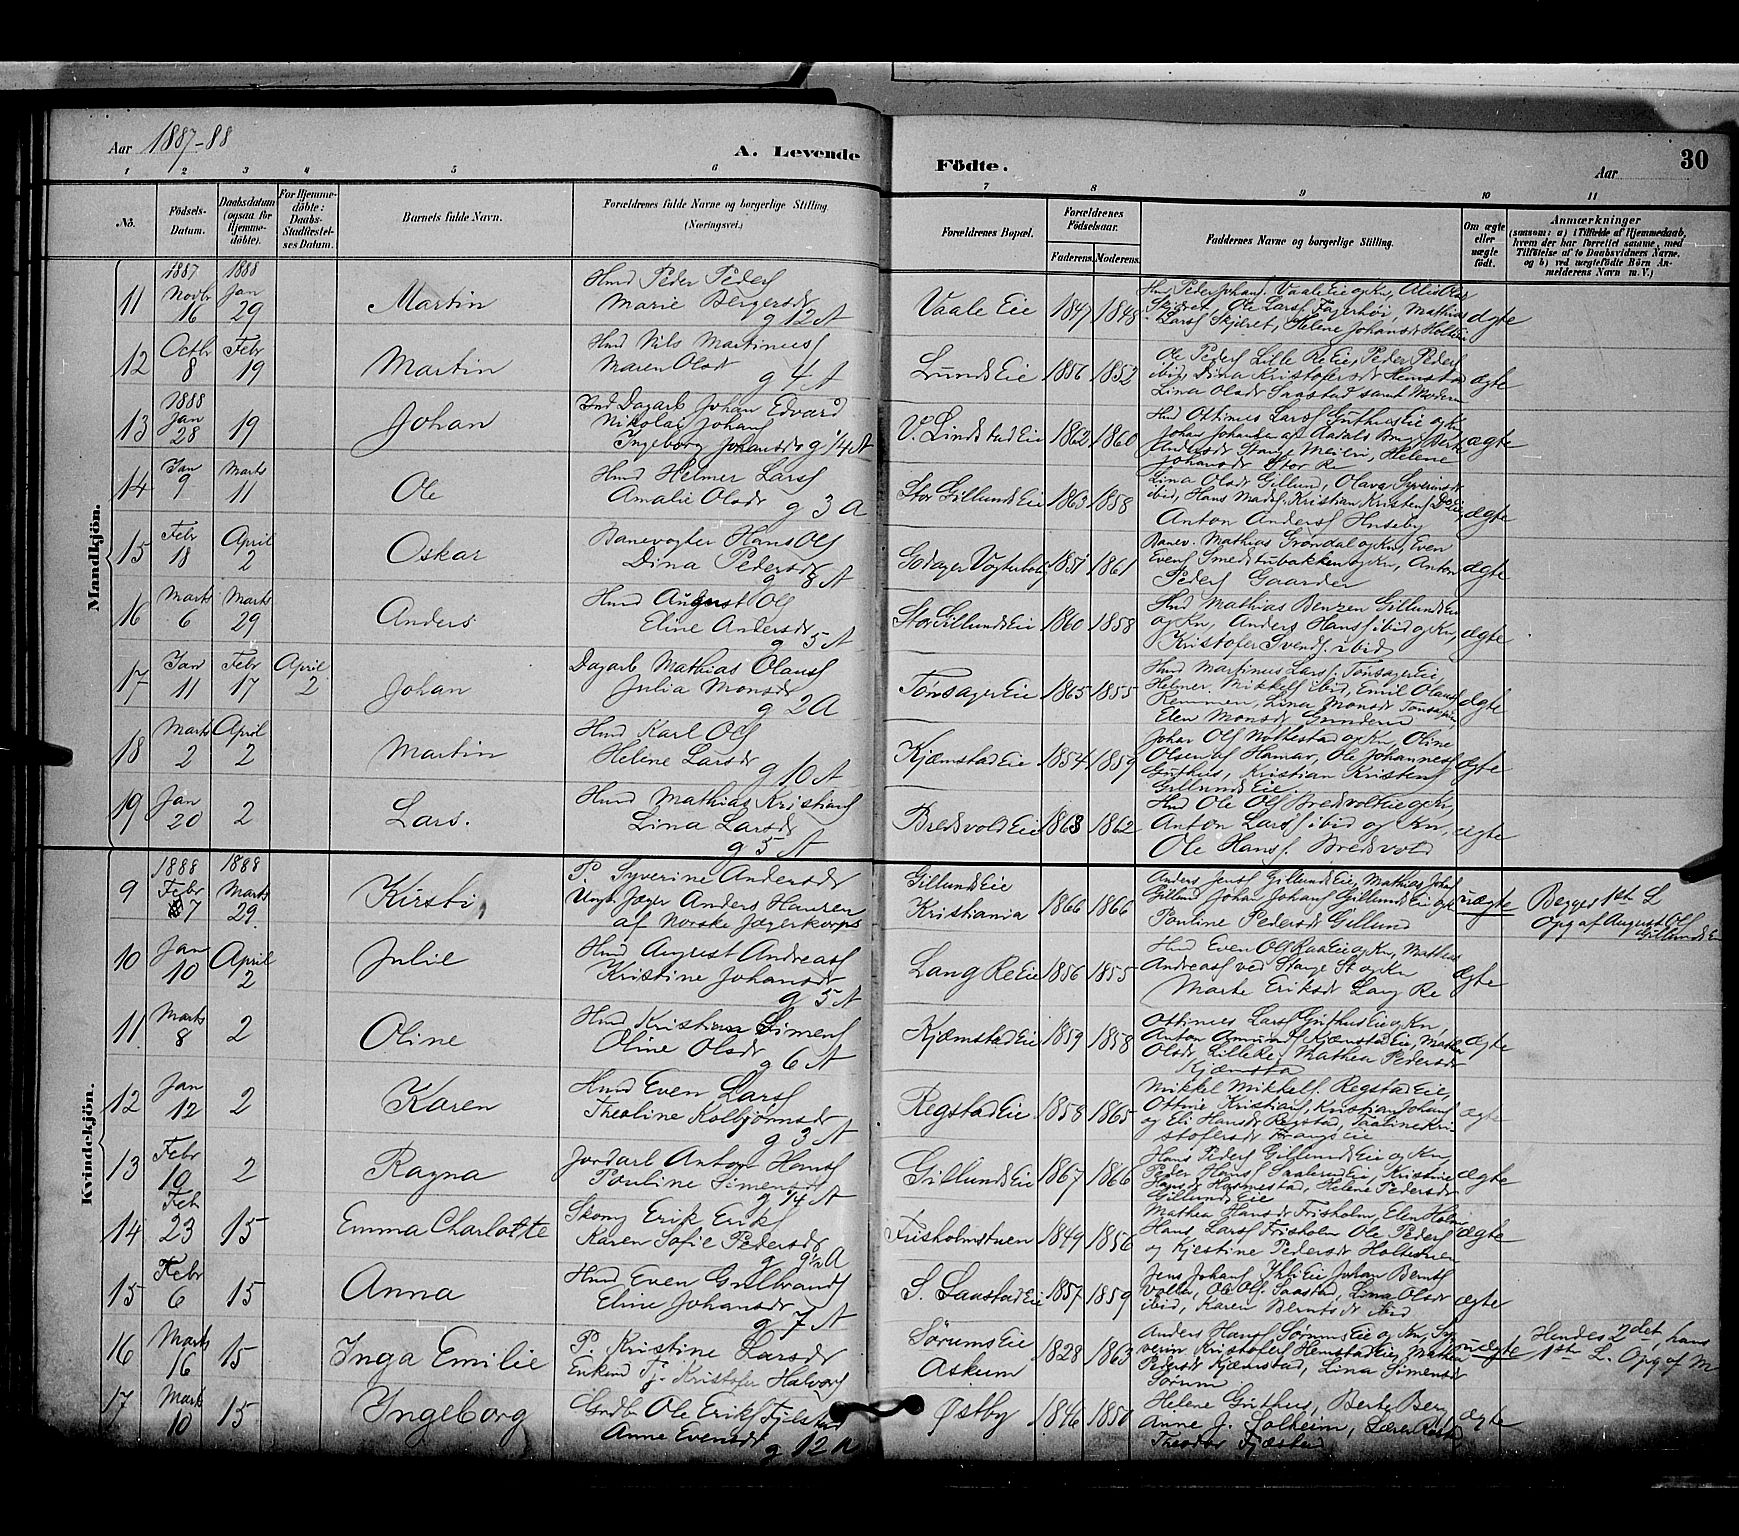 Aar 1887-88
A. Levende
Födte.
Aar
30
1 2 3 4 5 6 7 8 9 10 11
No.
Födsels-Datum.
Daabsdatum (ogsaa for Hjemmedöbte).
For Hjemmedöbte: Daabs-Stadfæstelses Datum.
Barnets fulde Navn.
Forældrenes fulde Navne og borgerlige Stilling (Næringsvei.)
Forældrenes Bopæl.
Forældrenes Födselsaar.
Faderens. Moderens.
Faddernes Navne og borgerlige Stilling.
Om ægte eller uægte födt.
Anmærkninger
(saasom: a) i Tilfælde af Hjemmedaab,
hvem der har forrettet samme, med
Tilföielse af to Daabsvidners Navne.
og b) ved uægtefödte Börn An-
melderens Navn m. V.)
Mandkjön.
11 1887 Novbr 16 1888 Jan 29 Martin
Hmd Peder Peders
Marie Bergersdr
g 12 A
Vaale Eie 1847 1848
Larss Skjæret, Helene Johansdr
ægte
12 Octbr 8 Febr 19 Martin
Hmd Nils Martinuss
Maren Olsdr
g 4 A
Lunds Eie 1856 1852
Ole Peders Lille Re Eie, Peder Peders
ibid, Dina Kristofersdr Hemstad
Lina Olsdr Saastad samt Moderen
ægte
13 1888 Jan 28 19 Johan
Ind Dagarb Johan Edvard
Nikolai Johans
Ingeborg Johansdr g 1/4 A
V. Lindstad Eie 1862 1860
Hmd Ottinus Larss Guthus Eie og Kn
Andersdr Stange Meieri, Helene
Johansdr Stor Re
ægte
14 Jan 9 Marts 11 Ole
Hmd Helmer Larss
Amalie Olsdr
g 3 A
Stor Gillunds Eie 1863 1858
Lina Olsdr Gillund, Olava Syverinsdr
ibid, Hans Mads, Kristian Kristens Do Eie
Anton Anderss Huseby
ægte
15 Febr 18 April 2 Oskar
Banevogter Hans Ols
Dina Pedersdr
g 8 A
Godager Vogterbolig 1851 1861
Banev. Mathias Grøndal og Kn, Even
Evens Smedstubakken og Kn, Anton
Peders Gaarder
ægte
16 Marts 6 Marts 29 Anders
Hmd August Ols
Eline Andersdr
g 5 A
Stor Gillunds Eie 1860 1858
Hmd Mathias Benzen Gillunds Eie
og Kn, Anders Hanss ibid og Kn,
Kristofer Svends. ibid
ægte
17 Jan 11 Febr 17 April 2 Johan
Dagarb Mathias Olauss
Julia Monsdr
g 2 A
Tønsager Eie 1865 1855
Hmd Martinus Larss. Tønsager Eie,
Helmer Mikkels ibid, Emil Olauss
Remmen, Lina Monsdr Tønsager,
Elen Monsdr
ægte
18 Marts 2 April 2 Martin
Hmd Karl Ols
Helene Larsdr
g 10 A
Kjæmstad Eie 1854 1859
Johan Ols Nøttestad og Kn, Oline
Olsen af Hamar, Ole Johanness
Guthus, Kristian Kristens
Gillunds Eie.
ægte
19 Jan 20 2 Lars.
Hmd Mathias Kristians
Lina Larsdr
g 5 A
Bredsvold Eie 1863 1862
Hmd Ole Ols Bredsvold Eie og Kn,
Anton Larss ibid og Kn,
Ole Hanss. Bredsvold
ægte
Kvindekjön.
9 1888 Febr 7 1888 Marts 29 Kirsti
P. Syverine Andersdr
Ungk. Jæger Anders Hansen
af Norske Jægerkorps
Gillunds Eie
Kristiania
1866 1866
Anders Jenss Gillunds Eie, Mathias Johs
Gillund Johan Johans Gillunds Eie og
Pauline Pedersdr Gillund
uægte
Begges 1ste L
Opg af August Ols
Gillunds Eie
10 Jan 10 April 2 Julie
Hmd August Andreass
Kristine Johansdr
g 5 A
Lang Re Eie 1856 1855
Hmd Even Ols Raa Eie og Kn, Mathias
Andreass ved Stange St og Kn
Marte Eriksdr Lang Re
ægte
11 Marts 8 2 Oline
Hmd Kristian Simens
Oline Olsdr
g 6 A
Kjæmstad Eie 1859 1858
Ottinus Larss Guthus Eie og Kn,
Anton Amunds Kjæmstad Eie, Mathea
Olsdr Lille Re, Mathea Pedersdr
Kjæmsta
ægte
12 Jan 12 2 Karen
Hmd Even Larss
Theoline Kolbjørnsdr
g 3 A
Regstad Eie 1858 1865
Mikkel Mikkels Regstad Eie,
Ottine Kristians, Kristian Johans
og Eli Hansdr Regstad,
ægte
13 Febr 19 2 Ragna
Jordarb Anton Hanss
Pauline Simensdr
g 1/4 A
Gillunds Eie 1867 1866
Hans Peders Gillunds Eie og Kn,
Peder Hanss Saalerud Eie, Kristine
Hansdr Hommestad, Helene Pedersdr
Gillunds Eie
ægte
14 Feb 23 15 Emma Charlotte
Skom Erik Eriks
Karen Sofie Pedersdr
g 9½ A
Frisholmstuen 1849 1856
Mathea Hansdr Frisholm, Elen Holm
Hans Larss Frisholm Ole Peders
og Kjestine Pedersdr
ægte
15 Febr 6 15 Anna
Hmd Even Gulbrands
Eline Johansdr
g 7 A
S. Saastad Eie 1857 1859
Jens Johans Ihle Eie Johan Bernts
Volden, Ole Ols. Saastad, Lina Olsdr
ibid, Karen Berntsdr ibid
ægte
16 Marts 16 15 Inga Emilie
P. Kristine Larsdr
Enkem Tj. Kristofer Halvors
Sørums Eie
Askum
1828 1863
Anders Hanss Sørums Eie og Kn, Sy-
verin Kristofers Hemstad Eie, Mathea
Pedersdr Kjæmstad, Lina Simensdr
Sørum
uægte
Hendes 2det, hans
1ste L. Opg af M
17 Marts 10 15 Ingeborg
Grdbr Ole Eriks Fjelstad
Anne Evensdr
g 12 A
Østby 1846 1850
Helene Guthus, Berte Berg
Anne J. Solheim, Lærer
Theodor Fjæstad
ægte